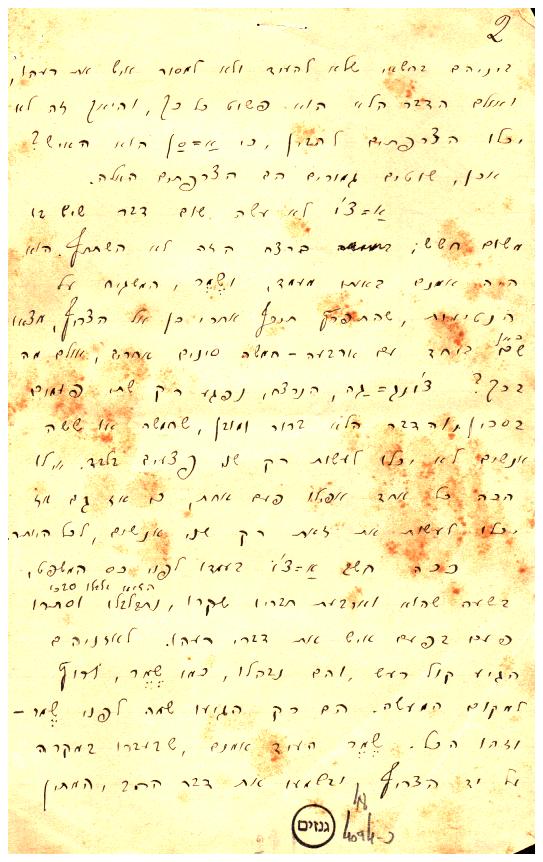 2
ביניהם בחשאי שלא להעיד ולא למסור איש את רעהו,
ואולם הדבר הלא הוא פשוט כל כך, והיאך זה לא
יכלו הצרפתים להבין, כי א=סן הוא האיש?
אכן, שוטים גמורים הם הצרפתים האלה.
א=צ'ו לא עשה שום דבר שיש בו
משום חשש; ברצח הזה לא השתתף. הוא
היה אמנם באותו מעמד, ושמר, המשגיח על
הנטיעות, שהתפרץ תיכף אחרי כן אל הצריף, מצאו
שם ביחד עם ארבעה-חמשה סינים אחרים, אולם מה
בכך? צ'ונג=גה, הנרצח, נפגע רק שתי פעמים
בסכין, והדבר הלא ברור ומובן, שחמשה או ששה
אנשים לא יכלו לעשות רק שני פצעים בלבד. אילו
הכה כל אחד אפילו פעם אחת, כי אז גם אז
יכלו לעשות את זאת רק שני אנשים, לכל היותר.
ככה חשב א=צ'ו בעמדו לפני כס המשפט,
בשעה שהוא וארבעת חבריו שקרו, נתבלבלו וסתרו
פעם בפעם איש את דברי רעהו. לאזניהם
הגיע קול רעש, והם נבהלו, כמו שמר, לרוץ
למקום המעשה. הם רק הגיעו שמה לפני שמר-
וזהו הכל. שמר העיד אמנם, שבעברו במקרה
על יד הצריף ובשמעו את דבר הריב, המתין
גנזים
48
כ-4094